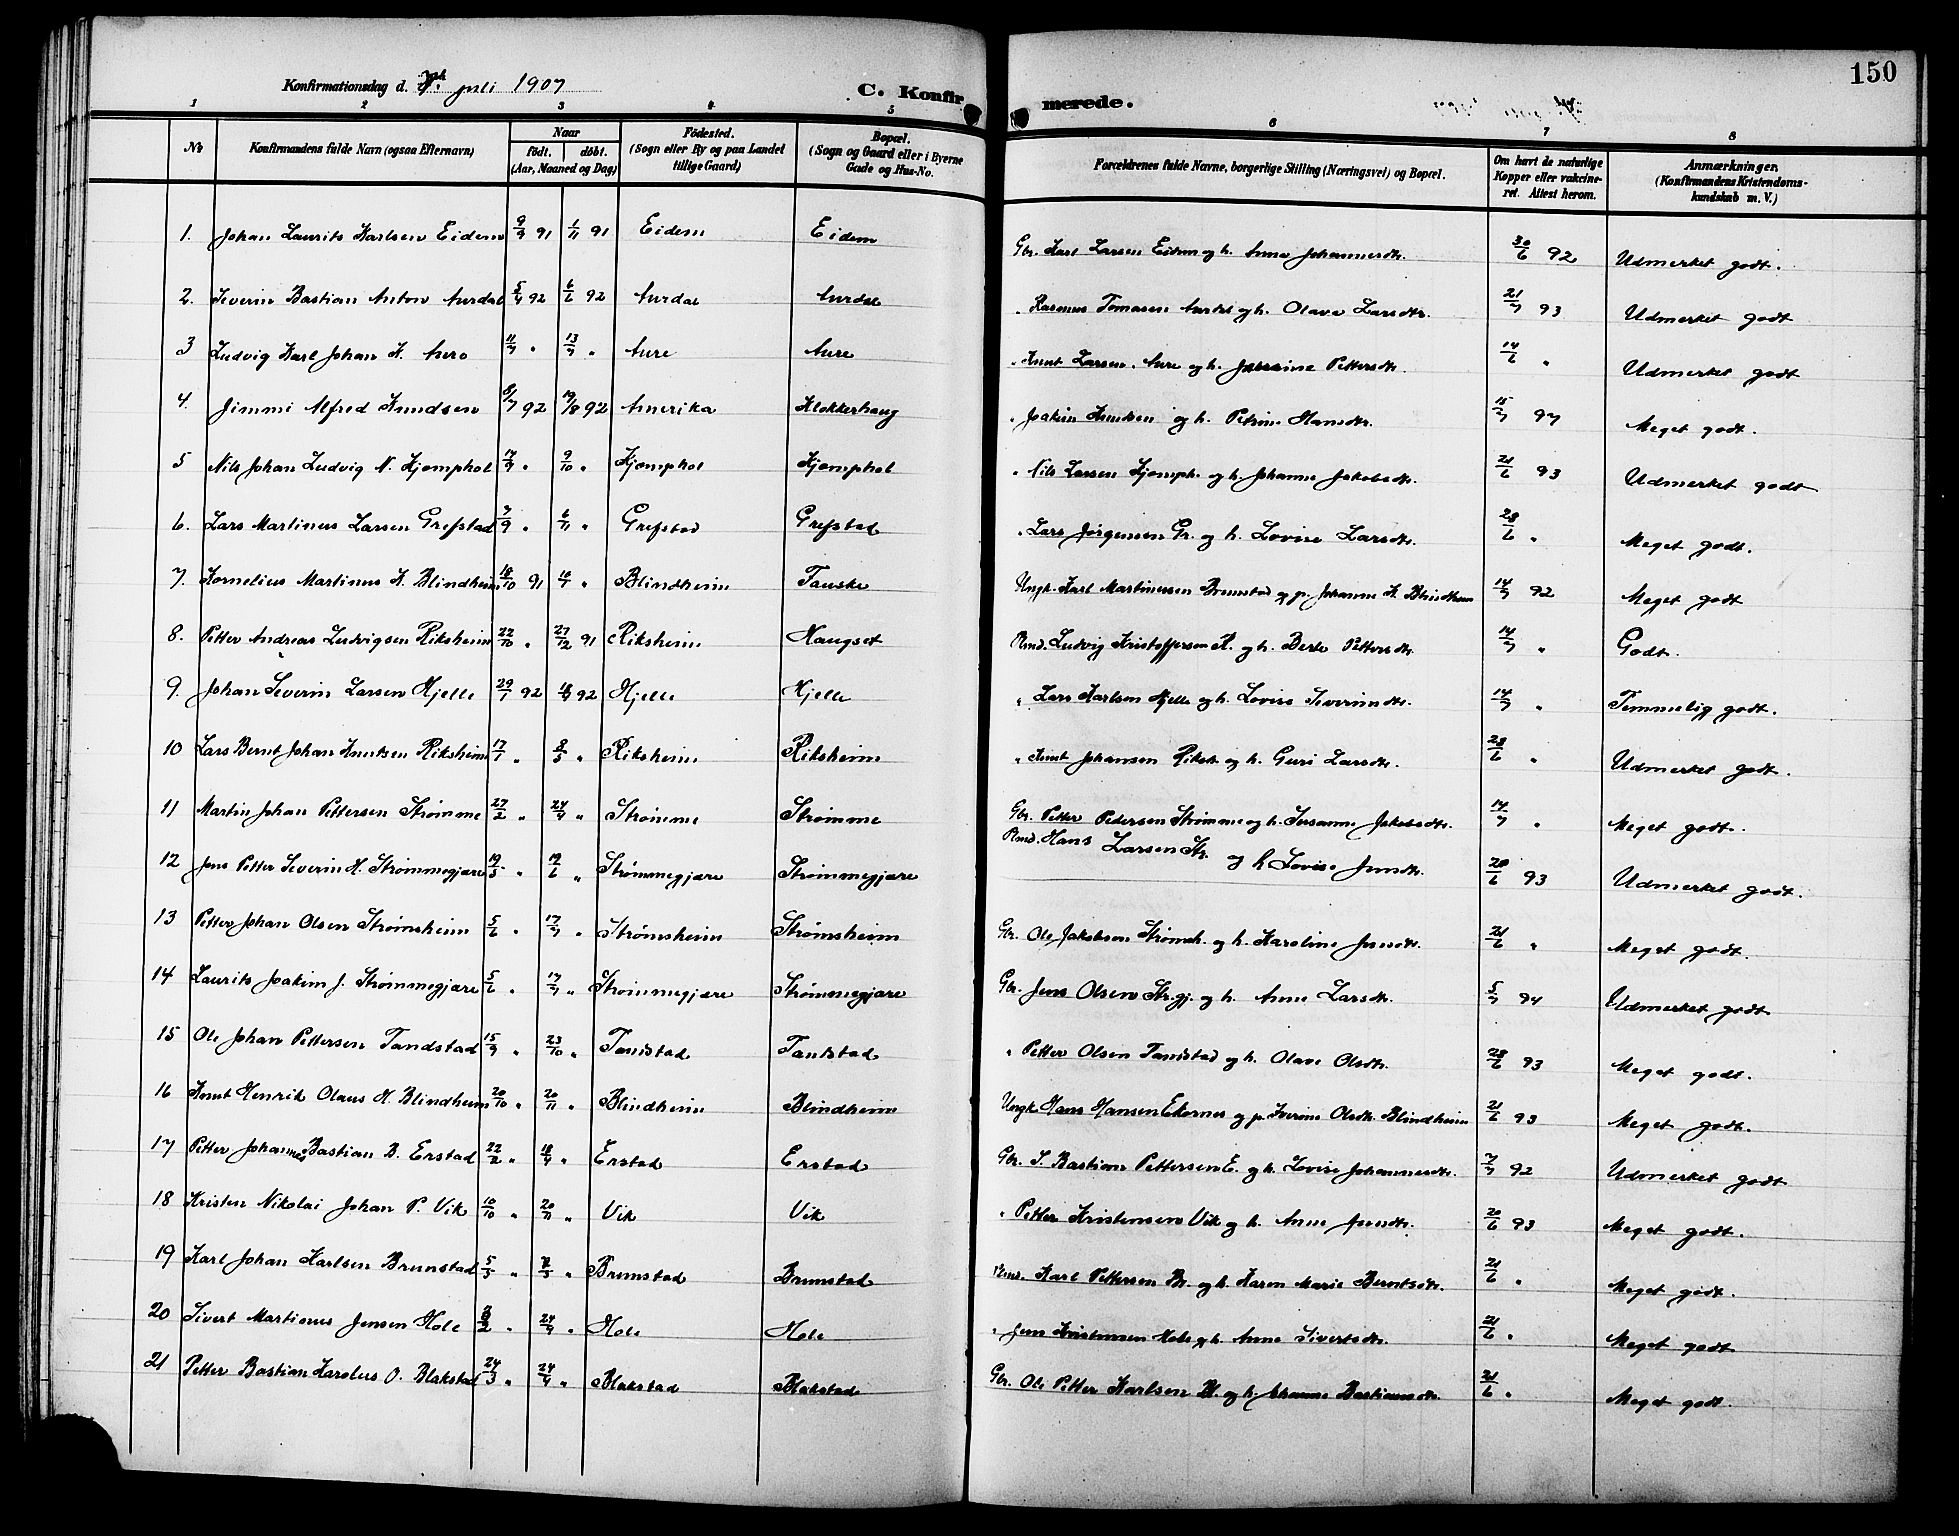 150
Konfirmationsdag d. 7. juli 1907
C. Konfirmerede.
1 2 3 4 5 6 7 8
No
Konfirmandens fulde Navn (ogsaa Efternavn)
Naar
født. døbt.
(Aar, Maaned og Dag)
Fødested.
(Sogn eller By og paa Landet
tillige Gaard)
Bopæl.
(Sogn og Gaard eller i Byerne
Gade og Hus-No.
Forældrenes fulde Navne, borgerlige Stilling (Næringsvei) og Bopæl.
Om havt de naturlige
Kopper eller vakcine-
ret. Attest herom.
Anmærkninger.
(Konfirmandens Kristendoms-
kundskab m. V.)
1. Johan Laurits Karlsen Eidem 9/9 91 1/11 91 Eidem Eidem Gbr. Karl Larsen Eidem og h. Anne Johannesdtr. 30/6 92 Udmerket godt.
2. Severin Bastian Anton Aurdal 5/4 92 6/6 92 Aurdal Aurdal " Rasmus Tomasen Aurdal og h. Olave Larsdtr. 21/7 93 Udmerket godt
3 Ludvig Karl Johan K. Aure 11/7 " 13/7 " Aure Aure " Knut Larsen Aure og h. Pettersdtr. 14/6 " Udmerket godt
4. Jimmi Alfred Knudsen 8/7 92 19/8 92 Amerika Klokkerhaug " Joakim Knutsen og h. Petrine Hansdtr. 15/7 97 Meget godt.
5 Nils Johan Ludvig N. Kjemphol 14/9 " 9/10 " Kjemphol Kjemphol " Nils Larsen Kjemph. og h. Johanne Jakobsdtr. 21/6 93 Udmerket godt
6. Lars Martinus Larsen Grefstad 7/9 " 6/11 " Grefstad Grefstad " Lars Jørgensen Gr. og h. Lovise Larsdtr. 28/6 " Meget godt.
7. Kornelius Martinus K. Blindheim 18/10 91 10/7 " Blindheim Tauske Ungk. Karl Martinussen Brunstad og p. Johanne K. Blindheim 14/7 92 Meget godt
8. Petter Andreas Ludvigsen Riksheim 22/10 " 27/12 91 Riksheim Haugset Rmd. Ludvig Kristoffersen R. og h. Berte Pettersdtr. 14/7 " Godt.
9. Johan Severin Larsen Hjelle 29/1 92 18/4 92 Hjelle Hjelle " Lars Karlsen Hjelle og h. Lovise Severinsdtr. 14/7 " Temmelig godt.
10 Lars Bernt Johan Knutsen Riksheim 17/1 " 8/5 " Riksheim Riksheim " Knut Johansen Riksh. og h. Guri Larsdtr. 28/6 " Udmerket godt.
11 Martin Johan Pettersen Strømme 27/2 " 24/4 " Strømme Strømme Gbr. Petter Petersen Strømme og h. Susanne Jakobsdtr. 14/7 " Meget godt.
12 Jens Petter Severin H. Strømmegjære 19/5 " 19/6 " Strømmegjære Strømmegjære Rmd. Hans Larsen Str. og h Lovise Jensdtr. 20/6 93 Udmerket godt.
13 Petter Johan Olsen Strømsheim 5/6 " 17/7 " Strømsheim Strømsheim Gbr. Ole Jakobsen Strømsh. og h. Karoline Jensdtr. 21/6 " Meget godt.
14 Laurits Joakim J. Strømmegjære 5/6 " 17/7 " Strømmegjære Strømmegjære Gbr. Jens Olsen Str.gj. og h. Anne Larsdtr. 5/7 94 Udmerket godt
15 Ole Johan Pettersen Tandstad 15/9 " 23/10 " Tandstad Tandstad " Petter Olsen Tandstad og h. Olave Olsdtr. 28/6 93 Meget godt.
16 Knut Henrik Olaus H. Blindheim 20/10 " 20/11 " Blindheim Blindheim Ungk. Hans Hansen Ekornes og p. Iverine Olsdtr. Blindheim 21/6 93 Meget godt.
17 Petter Johannes Bastian B. Erstad 22/2 " 18/4 " Erstad Erstad Gbr. S. Bastian Pettersen E. og h. Lovise Johannesdtr. 7/7 92 Udmerket godt
18 Kristen Nikolai Johan P. Vik 10/10 " 20/11 " Vik Vik " Petter Kristensen Vik og h. Anne Jensdtr. 20/6 93 Meget godt.
19 Karl Johan Karlsen Brunstad 5/5 " /5 " Brunstad Brunstad Rmd. Karl Pettersen Br. og h. Karen Marie Berntsdtr. 21/6 " Meget godt.
20 Sivert Martinus Jensen Hole /2 " 24/4 " Hole Hole " Jens Kristensen Hole og h. Anne Sivertsdtr. 21/6 " Meget godt
21 Petter Bastian Karolus O. Blakstad 24/3 " 24/4 " Blakstad Blakstad Gbr. Ole Petter Karlsen Bl. og h. Johanne Bastiansdtr. 21/6 " Meget godt.